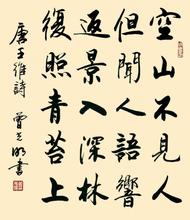 空山不見人
但聞人語響
返景入深林
復照青苔上
唐王維詩 曾 書